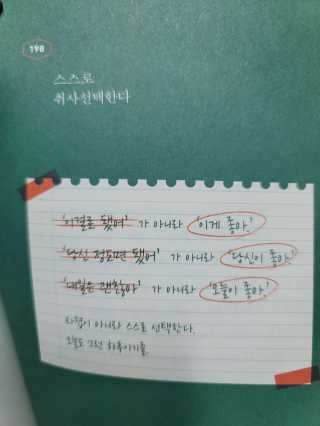 198
스스로
취사선택한다
'이걸로 됐어' 가 아니라 '이게 좋아!'
'당신 정도면 됐어' 가 아니라 '당신이 좋아!'
'내일은 괜찮아' 가 아니라 '오늘이 좋아!'
타협이 아니라 스스로 선택한다.
오늘도 그런 하루이기를.